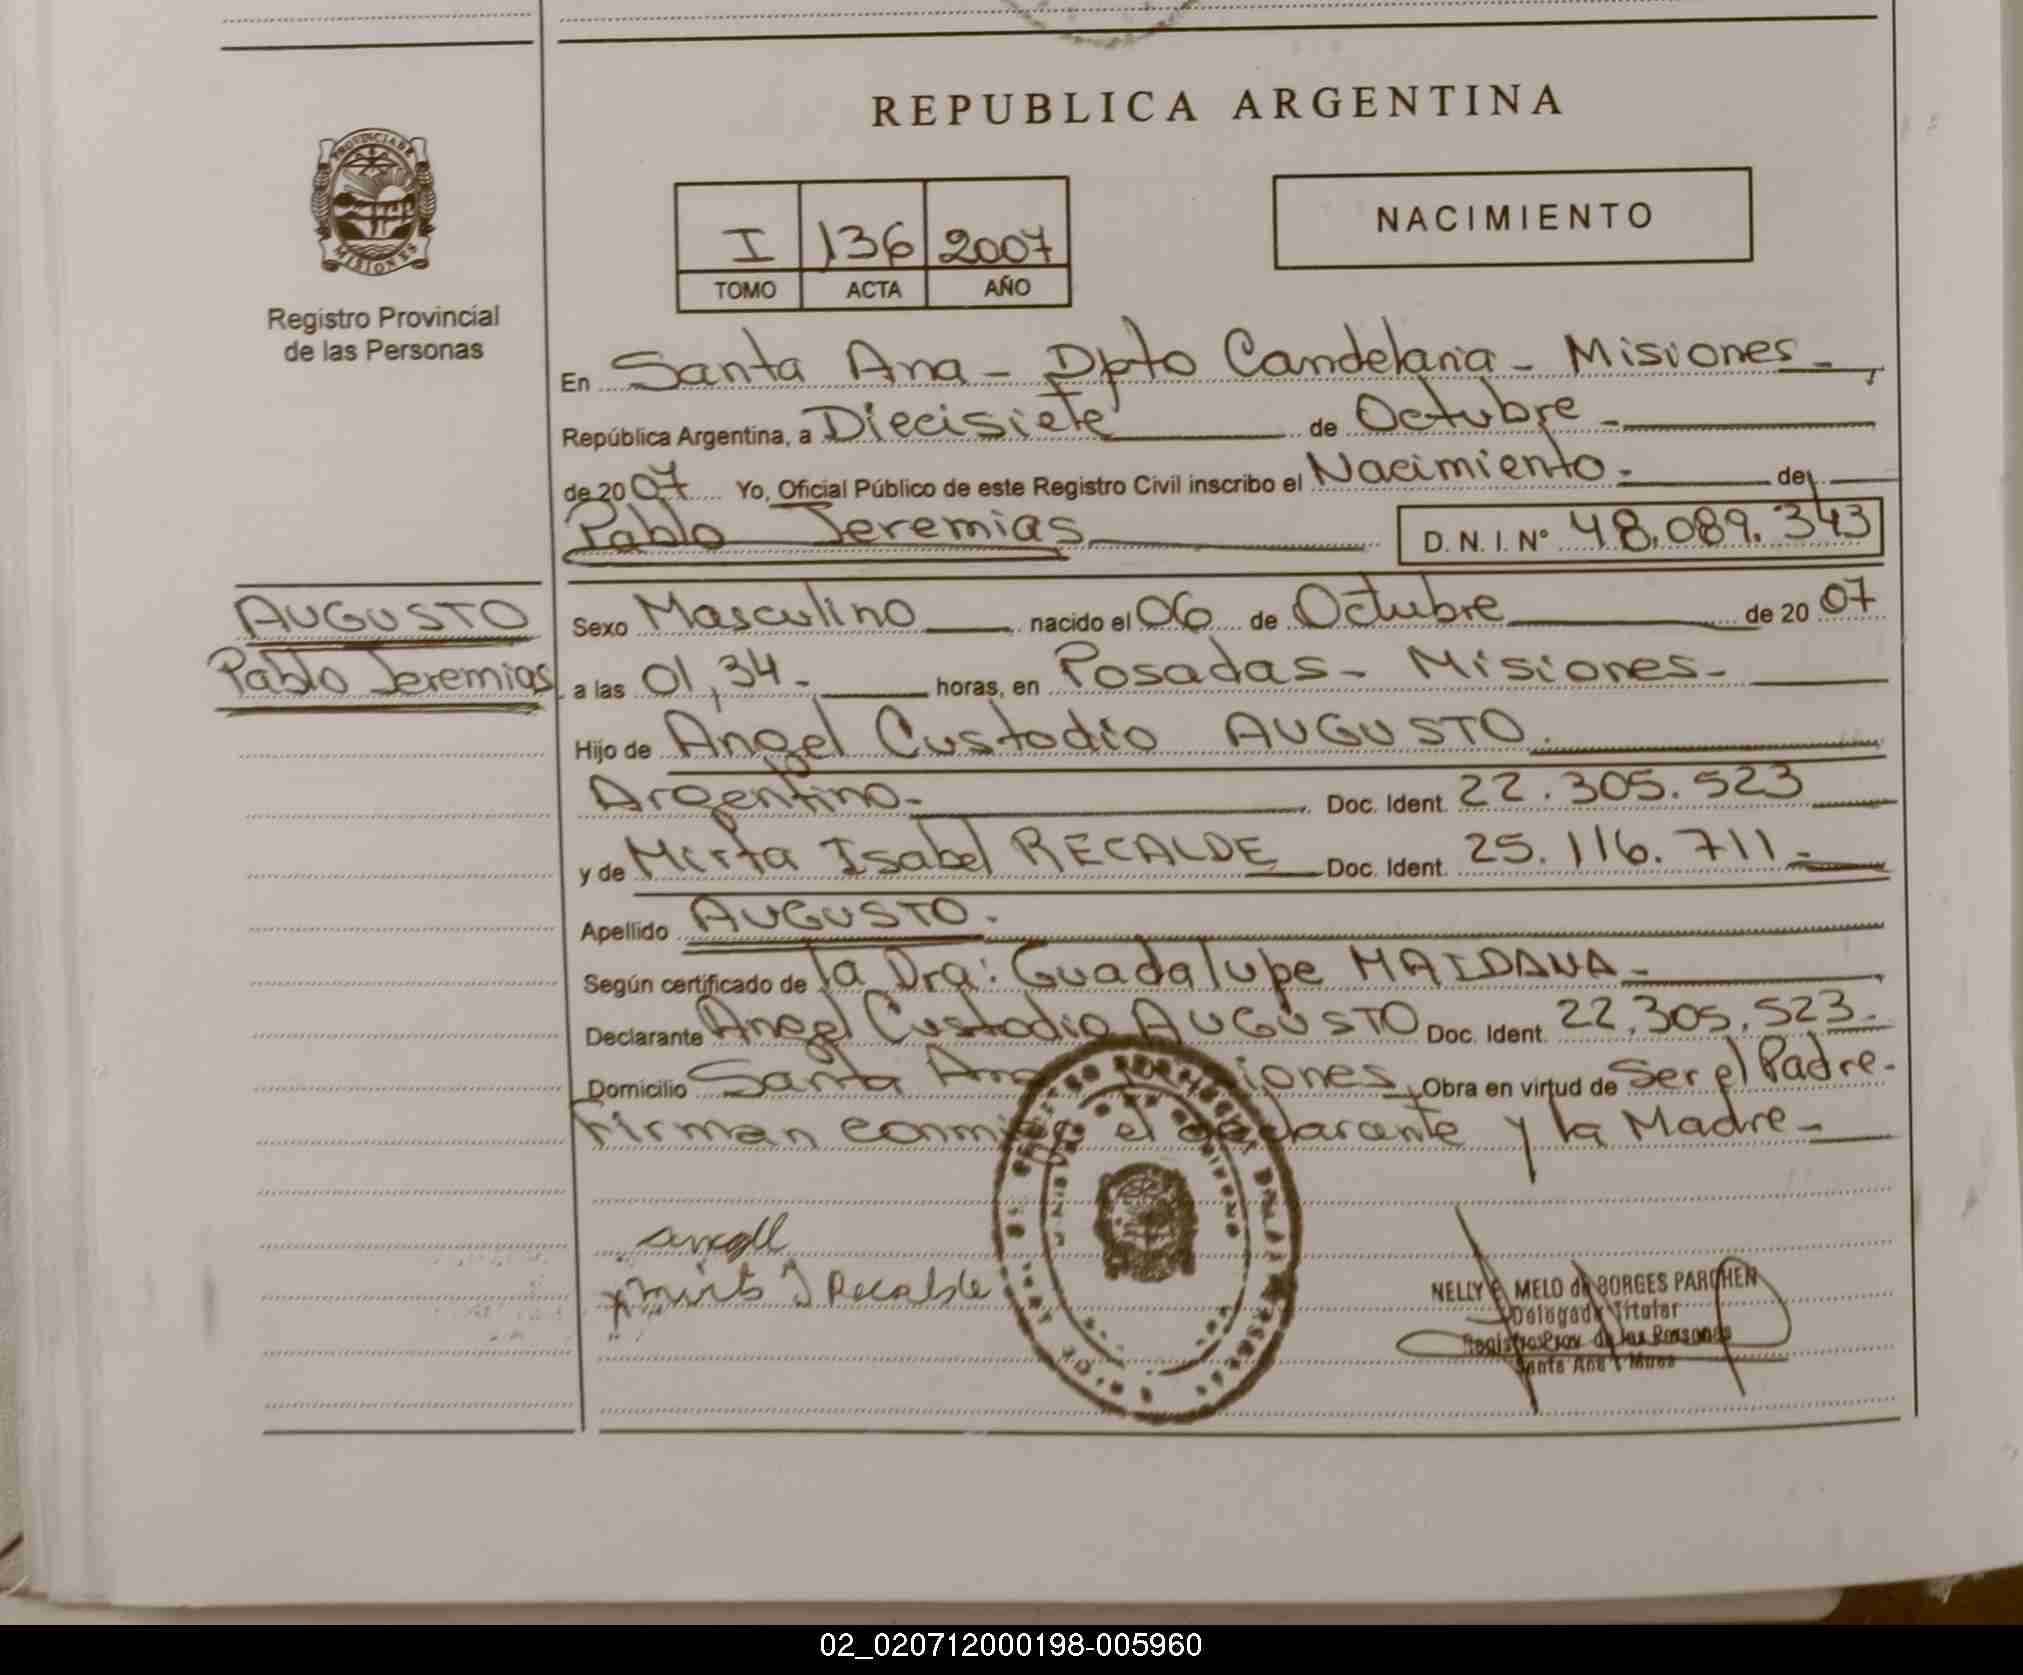 REPUBLICA ARGENTINA
PROVINCIA DE
MISIONES
Registro Provincial
de las Personas
I 136 2007
TOMO ACTA AÑO
NACIMIENTO
En Santa Ana - Dpto Candelaria - Misiones -
República Argentina, a Diecisiete de Octubre -
de 2007 Yo, Oficial Público de este Registro Civil inscribo el Nacimiento - de
Pablo Jeremias D. N. I. Nº 48.089.343
AUGUSTO
Pablo Jeremias
Sexo Masculino nacido el 06 de Octubre de 2007
a las 01,34 - horas, en Posadas - Misiones -
Hijo de Angel Custodio AUGUSTO.
Argentino - Doc. Ident. 22.305.523
y de Mirta Isabel RECALDE Doc. Ident. 25.116.711 -
Apellido AUGUSTO.
Según certificado de la Dra: Guadalupe MAIDANA -
Declarante Angel Custodio AUGUSTO Doc. Ident. 22.305.523 -
Domicilio Santa Ana Misiones, Obra en virtud de Ser el Padre -
Firman conmigo el declarante y la Madre -
Mirta I Recalde
NELLY E. MELO de BORGES PARCHEN
Delegada Titular
Registro Prov. de las Personas
Santa Ana Mnes
02_020712000198-005960